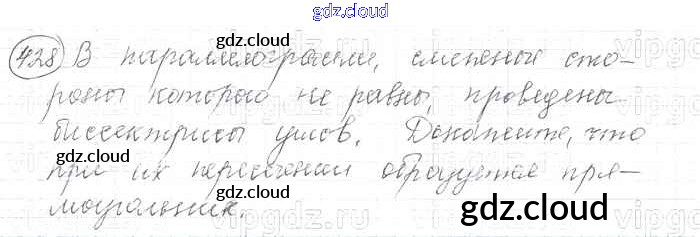 gdz.cloud
428 В параллелограмме, смежные сто-
роны которого не равны, проведены
биссектрисы углов. Докажите, что
при их пересечении образуется пря-
моугольник.
gdz.cloud
gdz.cloud
gdz.cloud
gdz.cloud
gdz.cloud
gdz.cloud